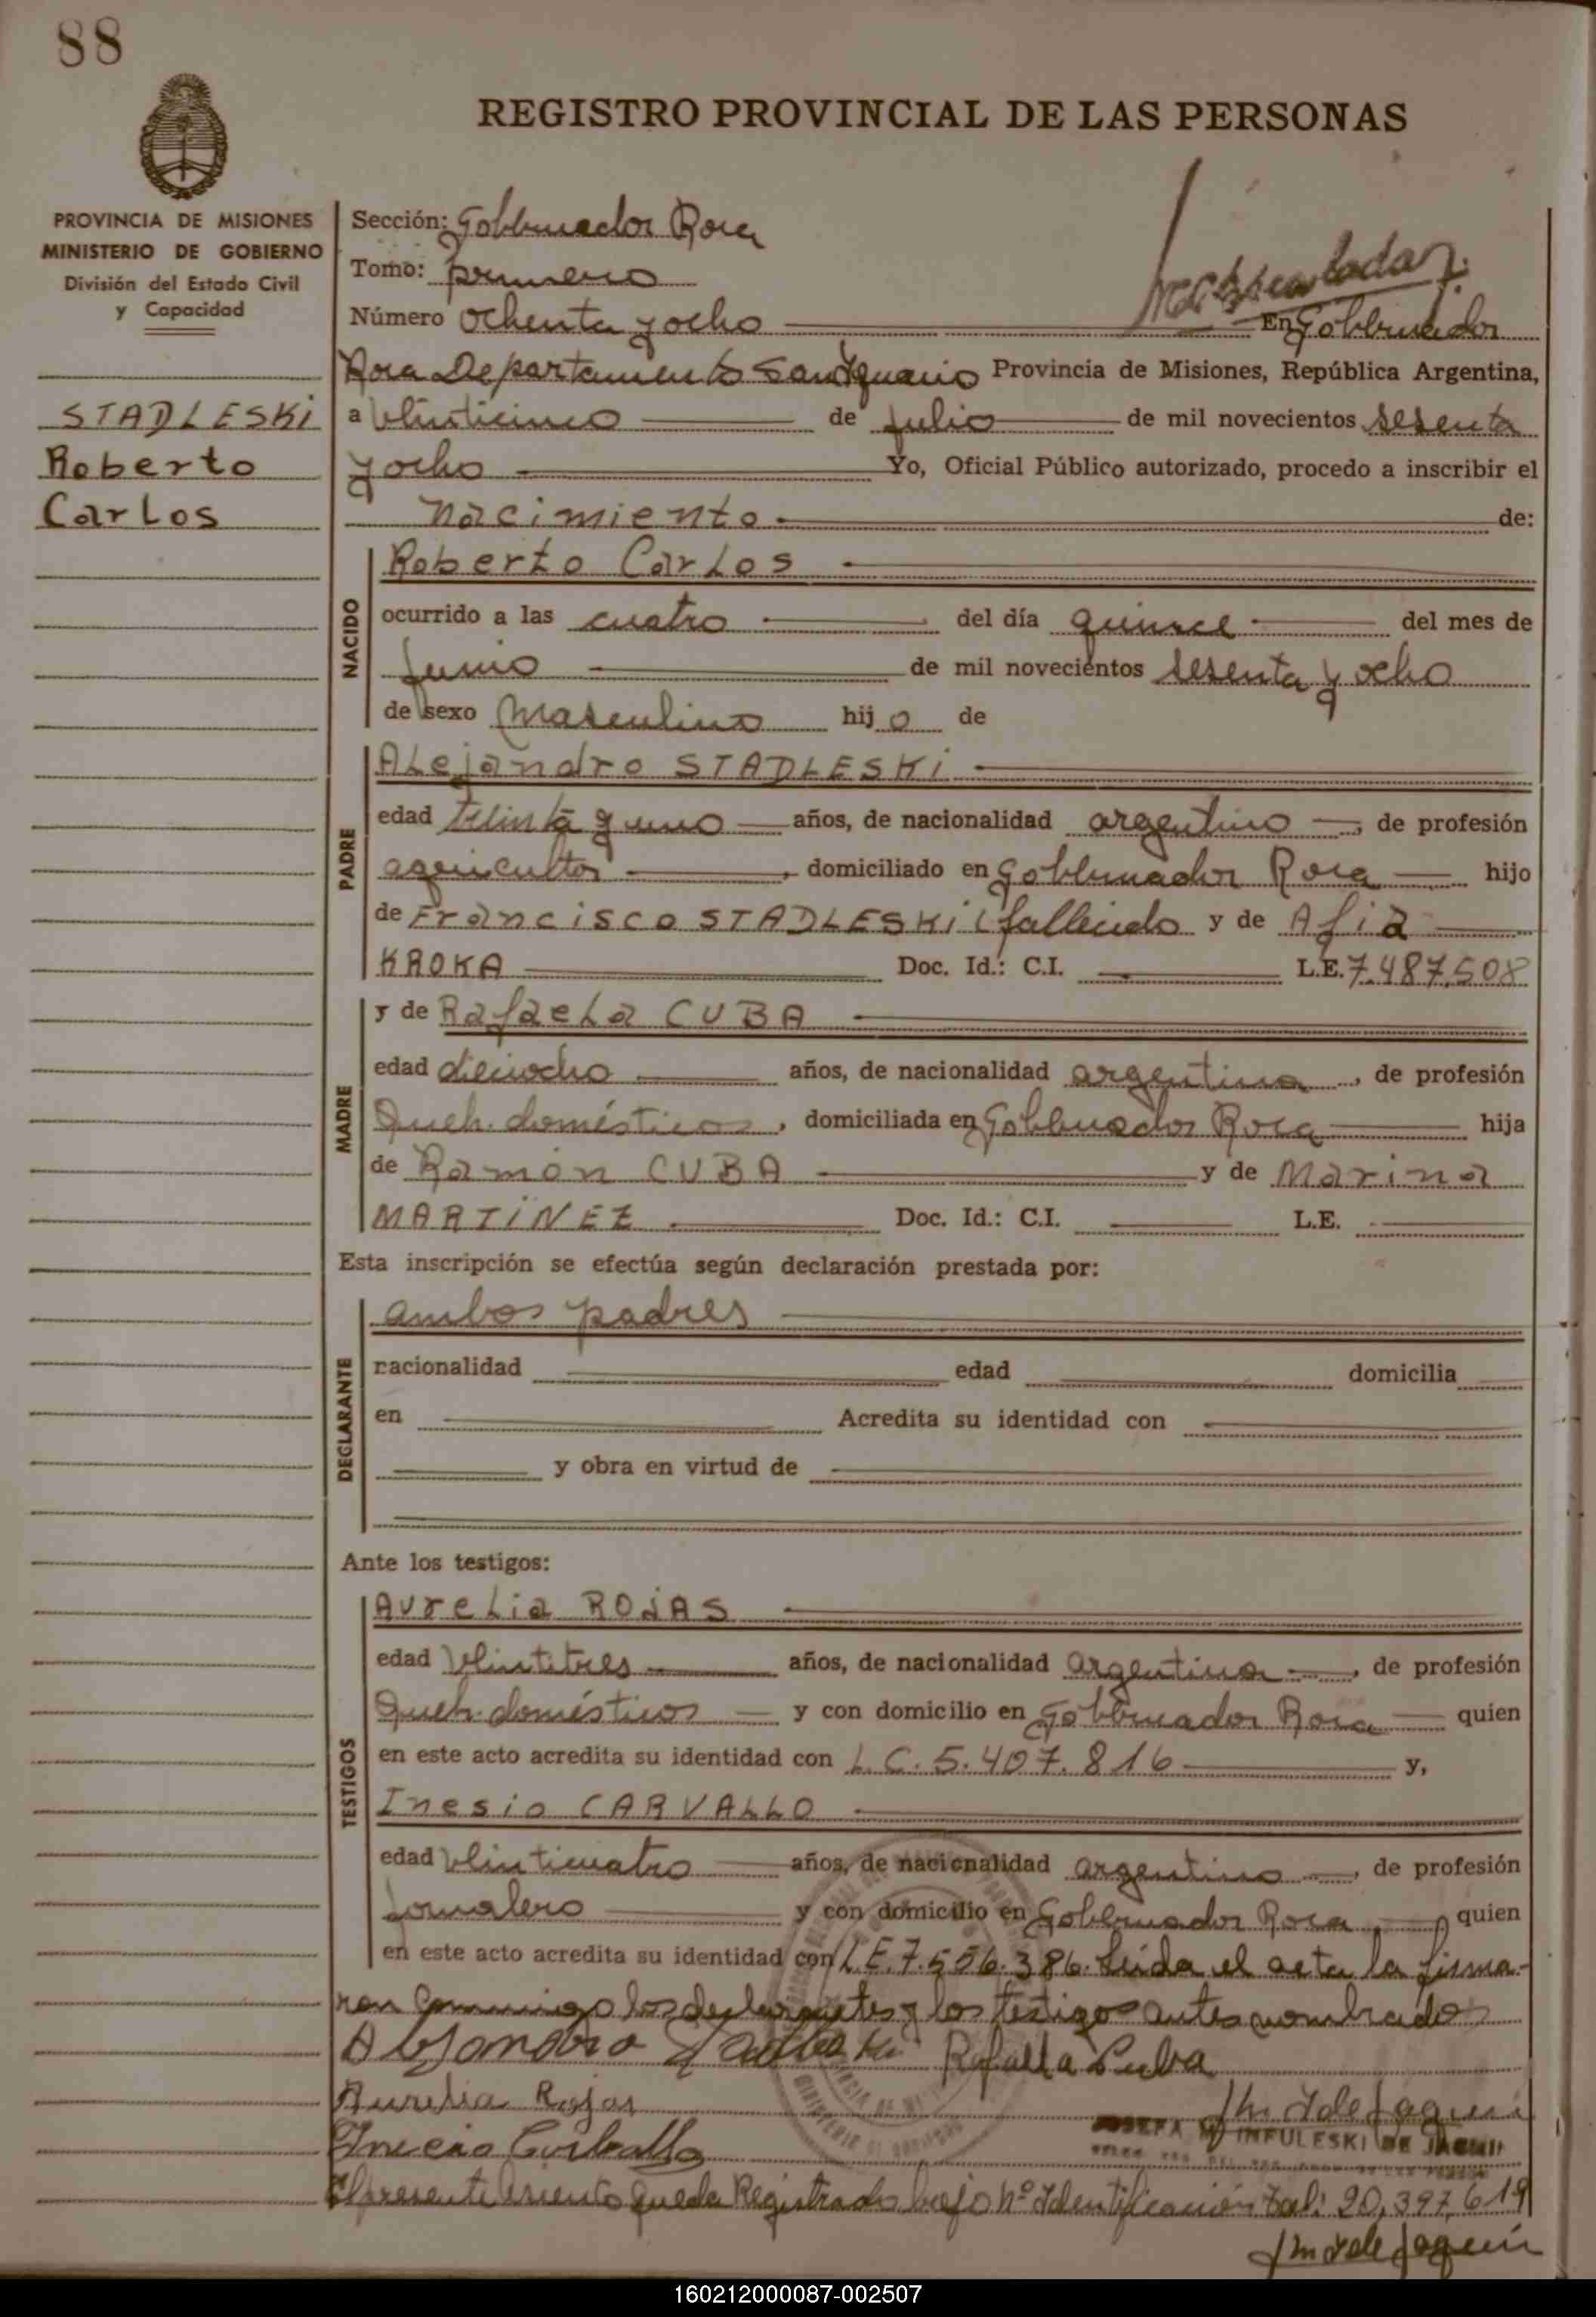 88
REGISTRO PROVINCIAL DE LAS PERSONAS
PROVINCIA DE MISIONES
MINISTERIO DE GOBIERNO
División del Estado Civil
y Capacidad
STADLESKI
Roberto
Carlos
Sección: Gobernador Roca
Tomo: primero
Número ochenta y ocho En Gobernador
Roca Departamento San Ignacio Provincia de Misiones, República Argentina,
a veinticinco de julio de mil novecientos sesenta
y ocho Yo, Oficial Público autorizado, procedo a inscribir el
nacimiento de:
NACIDO
Roberto Carlos
ocurrido a las cuatro del día quince del mes de
junio de mil novecientos sesenta y ocho
de sexo masculino hijo de
PADRE
Alejandro STADLESKI
edad treinta y uno años, de nacionalidad argentino, de profesión
agricultor, domiciliado en Gobernador Roca hijo
de Francisco STADLESKI (fallecido y de Afia
KROKA Doc. Id.: C.I. L.E. 7.487.508
MADRE
y de Rafaela CUBA
edad dieciocho años, de nacionalidad argentina, de profesión
Queh. domésticos, domiciliada en Gobernador Roca hija
de Ramón CUBA y de Marina
MARTINEZ Doc. Id.: C.I. L.E.
Esta inscripción se efectúa según declaración prestada por:
DECLARANTE
ambos padres
nacionalidad edad domicilia
en Acredita su identidad con
y obra en virtud de
Ante los testigos:
TESTIGOS
Aurelia ROJAS
edad veintitres años, de nacionalidad argentina, de profesión
Queh. domésticos y con domicilio en Gobernador Roca quien
en este acto acredita su identidad con L.C. 5.407.816 y,
Inesio CARVALLO
edad veinticuatro años, de nacionalidad argentino, de profesión
jornalero y con domicilio en Gobernador Roca, quien
en este acto acredita su identidad con L.E. 7.556.386. Leida el acta la firma-
ron conmigo los declarantes y los testigos antes nombrados
Alejandro Stadleski Rafaela Cuba
Aurelia Rojas
JOSEFA M INFULESKI DE JAQUIN
Inecio Carballo
El presente asiento queda Registrado bajo nº Identificación Fael: 20,397,619
160212000087-002507